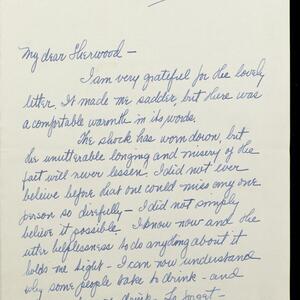 My dear Sherwood —
I am very grateful for the lovely
letter. It made me sadder, but there was
a comfortable warmth in its words.
The shock has worn down, but
the unutterable longing and misery of the
fact will never lessen. I did not ever
believe before that one could miss any one
person so direfully — I did not simply
believe it possible. I know now and the
utter helplessness to do anything about it
holds me tight — I can now understand
why some people take to drink — and
drink — to forget —